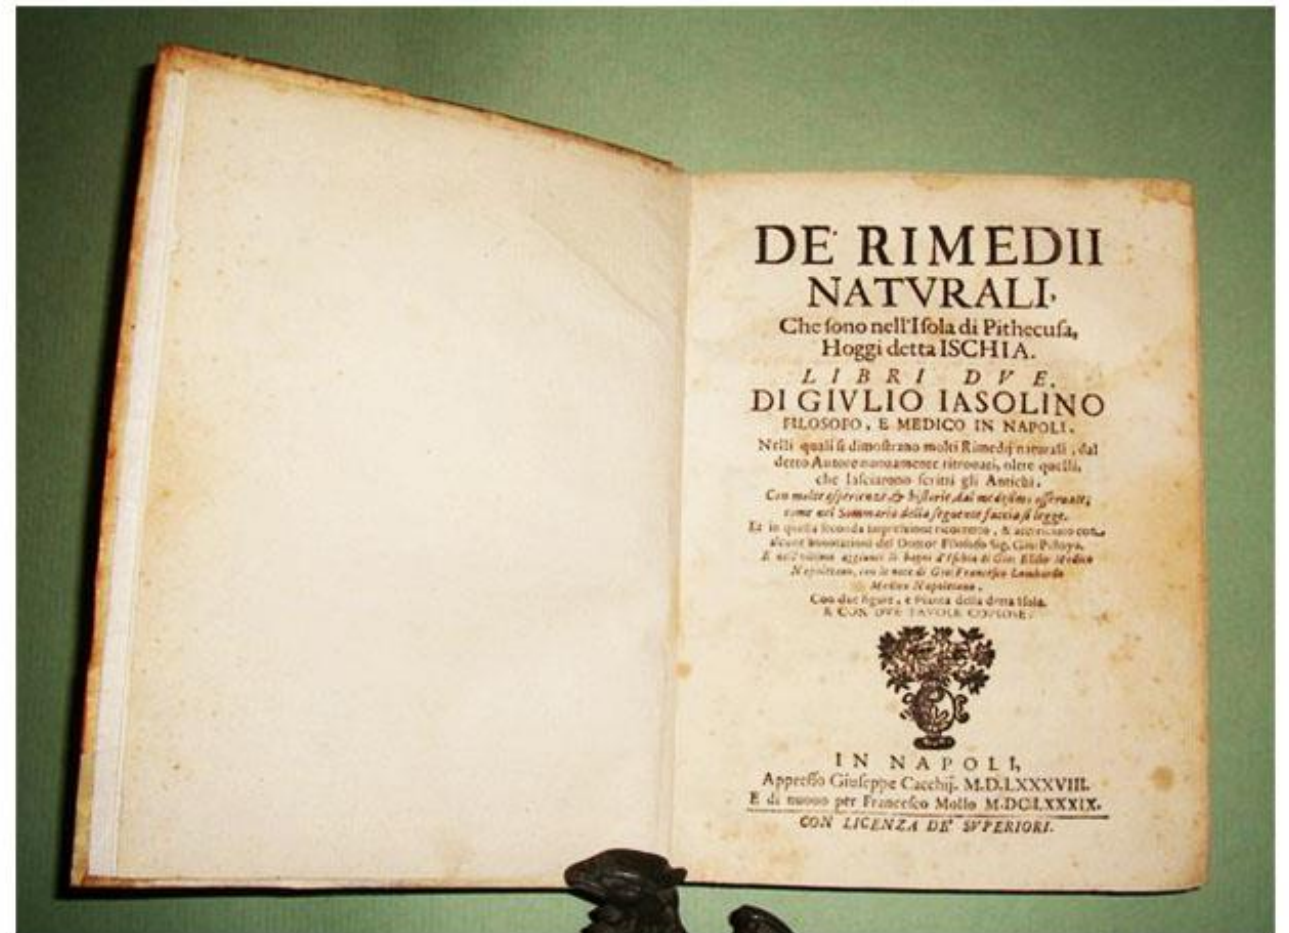 DE' RIMEDII
NATVRALI,
Che ſono nell'Iſola di Pithecuſa,
Hoggi detta ISCHIA.
LIBRI DVE.
DI GIVLIO IASOLINO
FILOSOFO, E MEDICO IN NAPOLI.
Nelli quali ſi dimoſtrano molti Rimedij naturali, dal
detto Autore nuouamente ritrouati, oltre quelli,
che laſciarono ſcritti gli Antichi.
Con molte eſperienze, & hiſtorie dal medeſimo oſſeruate;
come nel Sommario della ſeguente faccia ſi legge.
Et in queſta ſeconda impreſſione ricorretto, & accreſciuto con
alcune annotationi del Dottor Filoſofo Sig. Gio:
E nell'vltimo aggiunti li bagni d'Iſchia di Gio: Eliſio Medico
Napolitano, con le note di Gio: Franceſco Lombardo
Medico Napolitano.
Con due figure, e Pianta della detta Iſola.
E CON DVE TAVOLE COPIOSE.
IN NAPOLI,
Appreſſo Giuſeppe Cacchij. M.D.LXXXVIII.
E di nuouo per Franceſco Mollo M.DC.LXXXIX.
CON LICENZA DE' SVPERIORI.